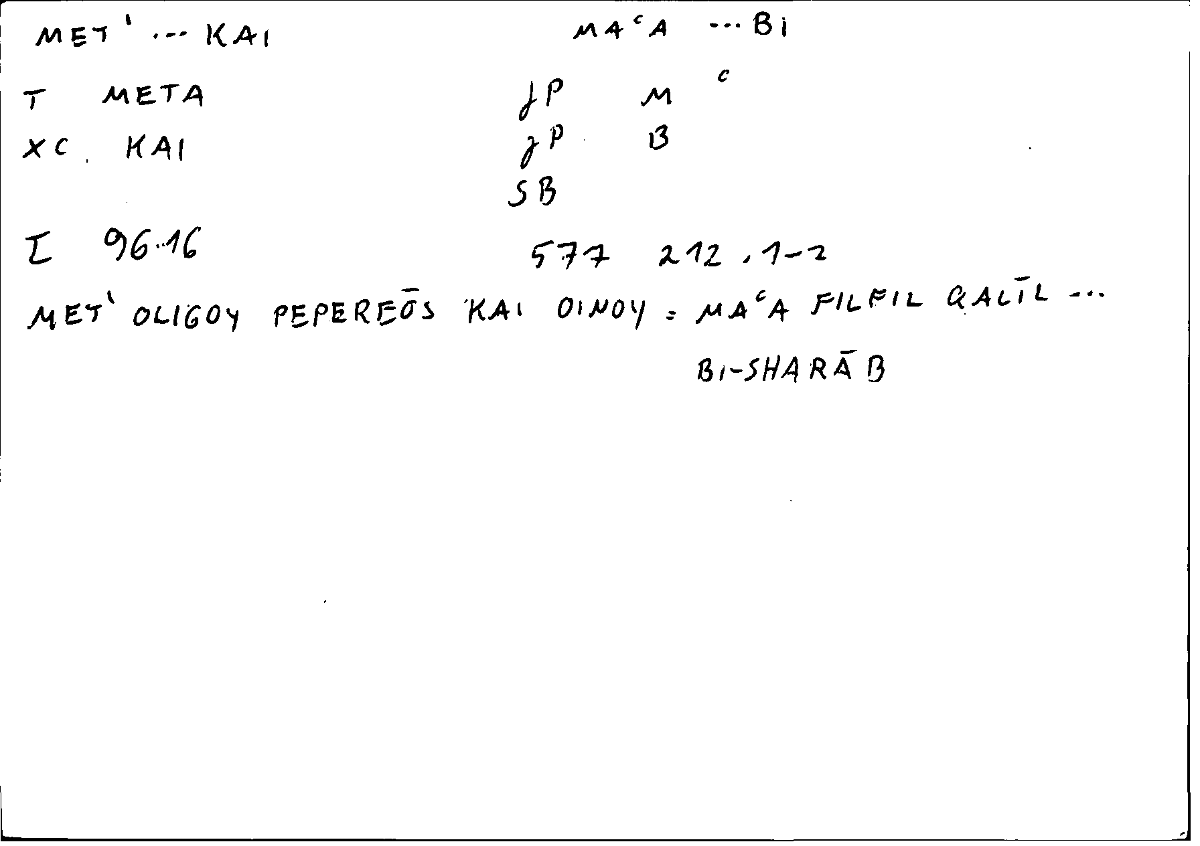 MET' ... KAI MAᶜA ... Bi
T META JP M ᶜ
XC. KAI JP B
SB
I 96.16 577 212.1-2
MET' OLIGOY PEPEREŌS KAI OINOY = MAᶜA FILFIL QALĪL ...
Bi-SHARĀB